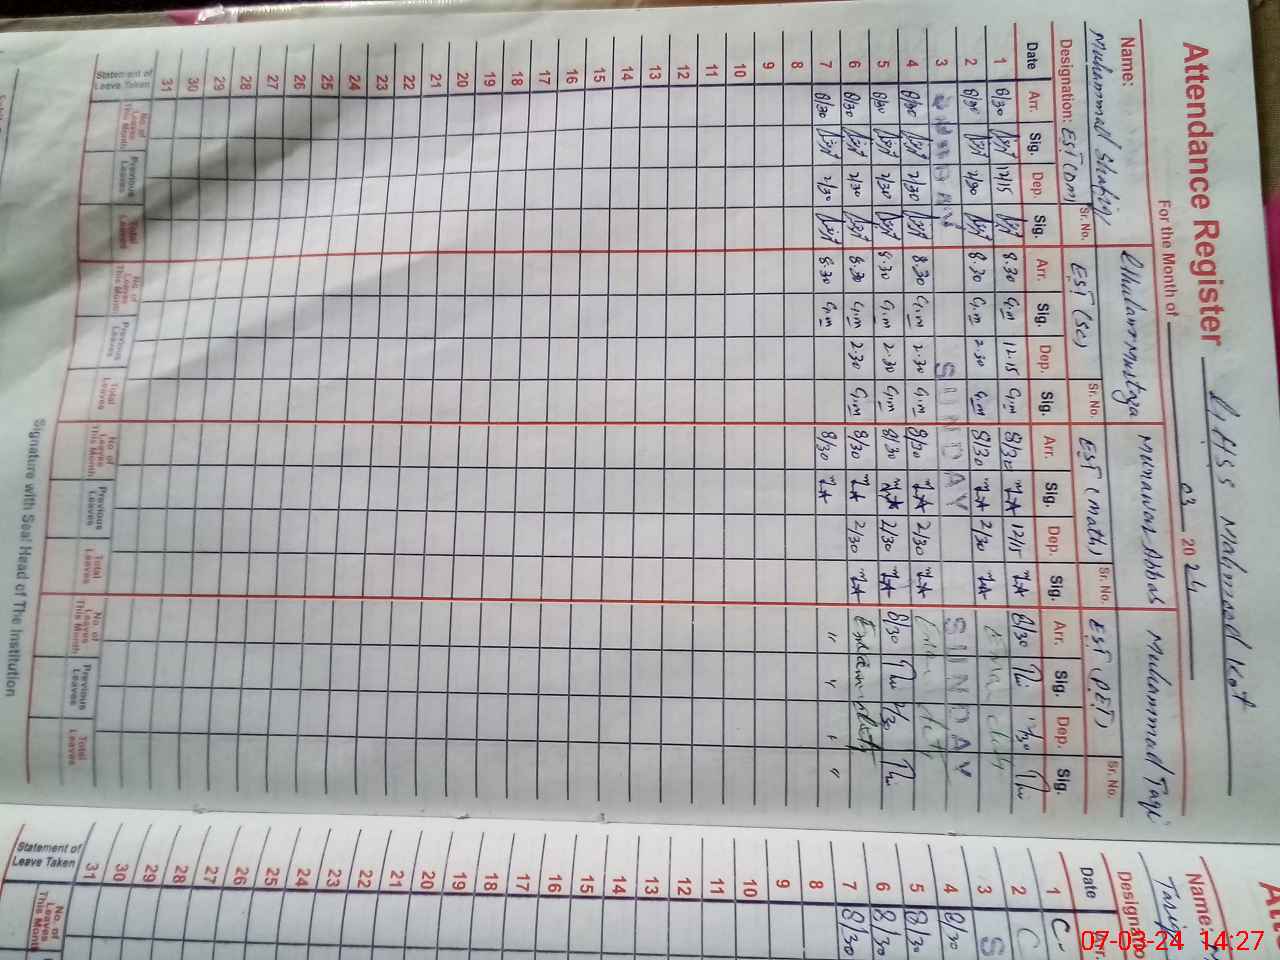 Attendance Register GHSS Mahmood Kot
For the Month of 03 2024
Name: Muhammad Shabir Ghulam Mustafa Munawar Abbas Muhammad Taqi
Designation: EST (DM) Sr. No. EST (SC) Sr. No. EST (Maths) Sr. No. EST (PET) Sr. No.
Date Arr. Sig. Dep. Sig. Arr. Sig. Dep. Sig. Arr. Sig. Dep. Sig. Arr. Sig. Dep. Sig.
1 8/30 12/15 8.30 G.m 12.15 G.m 8/30 M.A 12/15 M.A 8/30
2 8/30 2/30 8.30 G.m 2.30 G.m 8/30 M.A 2/30 M.A
3 SUNDAY SUNDAY SUNDAY
4 8/30 2/30 8.30 G.m 2.30 G.m 8/30 M.A 2/30 M.A
5 8/30 2/30 8.30 G.m 2.30 G.m 8/30 M.A 2/30 M.A 8/30 2/30
6 8/30 2/30 8.30 G.m 2.30 G.m 8/30 M.A 2/30 M.A
7 8/30 2/30 8.30 G.m 8/30 M.A " " " "
8
9
10
11
12
13
14
15
16
17
18
19
20
21
22
23
24
25
26
27
28
29
30
31
Statement of Leave Taken No. of Leaves This Month Previous Leaves Total Leaves No. of Leaves This Month Previous Leaves Total Leaves No. of Leaves This Month Previous Leaves Total Leaves No. of Leaves This Month Previous Leaves Total Leaves
Signature with Seal Head of The Institution
Name:
Designa
Date Arr.
1 C
2 C
3 S
4 8/30
5 8/30
6 8/30
7 8/30
8
9
10
11
12
13
14
15
16
17
18
19
20
21
22
23
24
25
26
27
28
29
30
31
Statement of Leave Taken No. of Leaves This Month
07-03-24 14:27